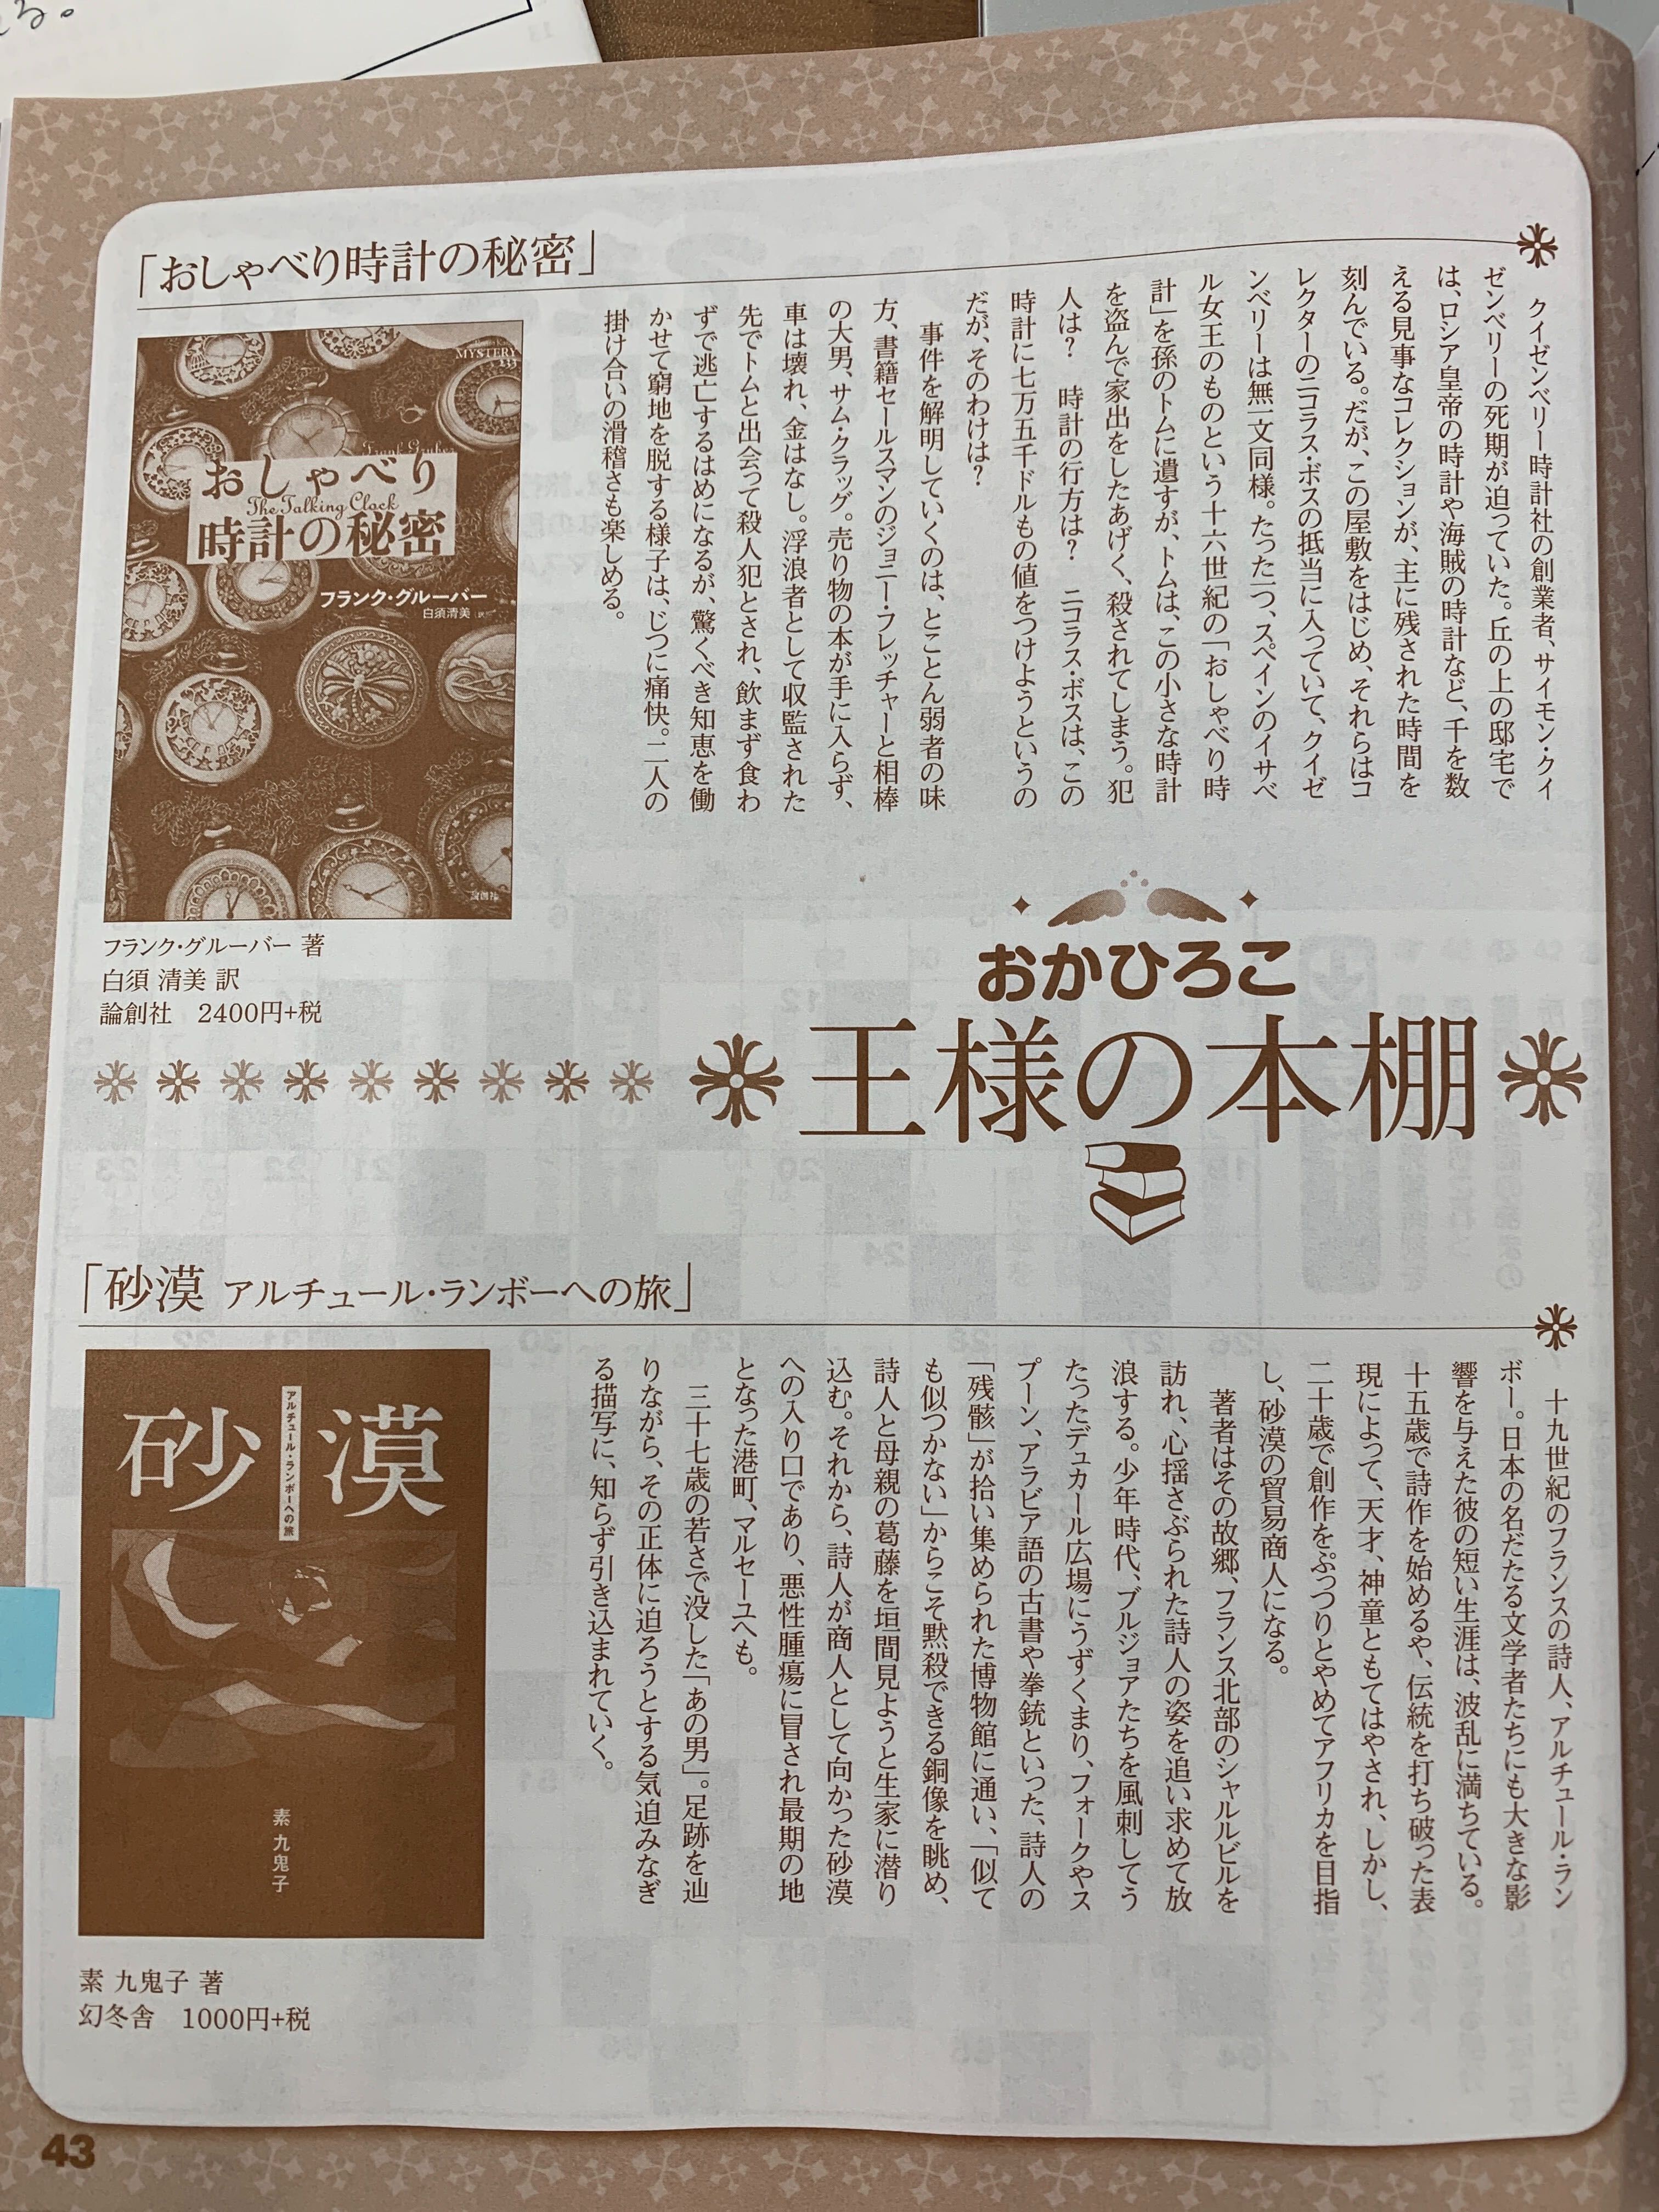 「おしゃべり時計の秘密」
クイゼンベリー時計社の創業者、サイモン・クイ
ゼンベリーの死期が迫っていた。丘の上の邸宅で
は、ロシア皇帝の時計や海賊の時計など、千を数
える見事なコレクションが、主に残された時間を
刻んでいる。だが、この屋敷をはじめ、それらはコ
レクターのニコラス・ボスの抵当に入っていて、クイゼ
ンベリーは無一文同様。たった一つ、スペインのイサベ
ル女王のものという十六世紀の「おしゃべり時
計」を孫のトムに遺すが、トムは、この小さな時計
を盗んで家出をしたあげく、殺されてしまう。犯
人は？　時計の行方は？　ニコラス・ボスは、この
時計に七万五千ドルもの値をつけようというの
だが、そのわけは？
事件を解明していくのは、とことん弱者の味
方、書籍セールスマンのジョニー・フレッチャーと相棒
の大男、サム・クラッグ。売り物の本が手に入らず、
車は壊れ、金はなし。浮浪者として収監された
先でトムと出会って殺人犯とされ、飲まず食わ
ずで逃亡するはめになるが、驚くべき知恵を働
かせて窮地を脱する様子は、じつに痛快。二人の
掛け合いの滑稽さも楽しめる。
MYSTERY
133
Frank Gruber
おしゃべり
The Talking Clock
時計の秘密
フランク・グルーバー
白須清美 訳
論創社
フランク・グルーバー 著
白須 清美 訳
論創社　2400円+税
おかひろこ
王様の本棚
「砂漠 アルチュール・ランボーへの旅」
十九世紀のフランスの詩人、アルチュール・ラン
ボー。日本の名だたる文学者たちにも大きな影
響を与えた彼の短い生涯は、波乱に満ちている。
十五歳で詩作を始めるや、伝統を打ち破った表
現によって、天才、神童ともてはやされ、しかし、
二十歳で創作をぷっつりとやめてアフリカを目指
し、砂漠の貿易商人になる。
著者はその故郷、フランス北部のシャルルビルを
訪れ、心揺さぶられた詩人の姿を追い求めて放
浪する。少年時代、ブルジョアたちを風刺してう
たったデュカール広場にうずくまり、フォークやス
プーン、アラビア語の古書や拳銃といった、詩人の
「残骸」が拾い集められた博物館に通い、「似て
も似つかない」からこそ黙殺できる銅像を眺め、
詩人と母親の葛藤を垣間見ようと生家に潜り
込む。それから、詩人が商人として向かった砂漠
への入り口であり、悪性腫瘍に冒され最期の地
となった港町、マルセーユへも。
三十七歳の若さで没した「あの男」。足跡を辿
りながら、その正体に迫ろうとする気迫みなぎ
る描写に、知らず引き込まれていく。
砂漠
アルチュール・ランボーへの旅
素 九鬼子
素 九鬼子 著
幻冬舎　1000円+税
43